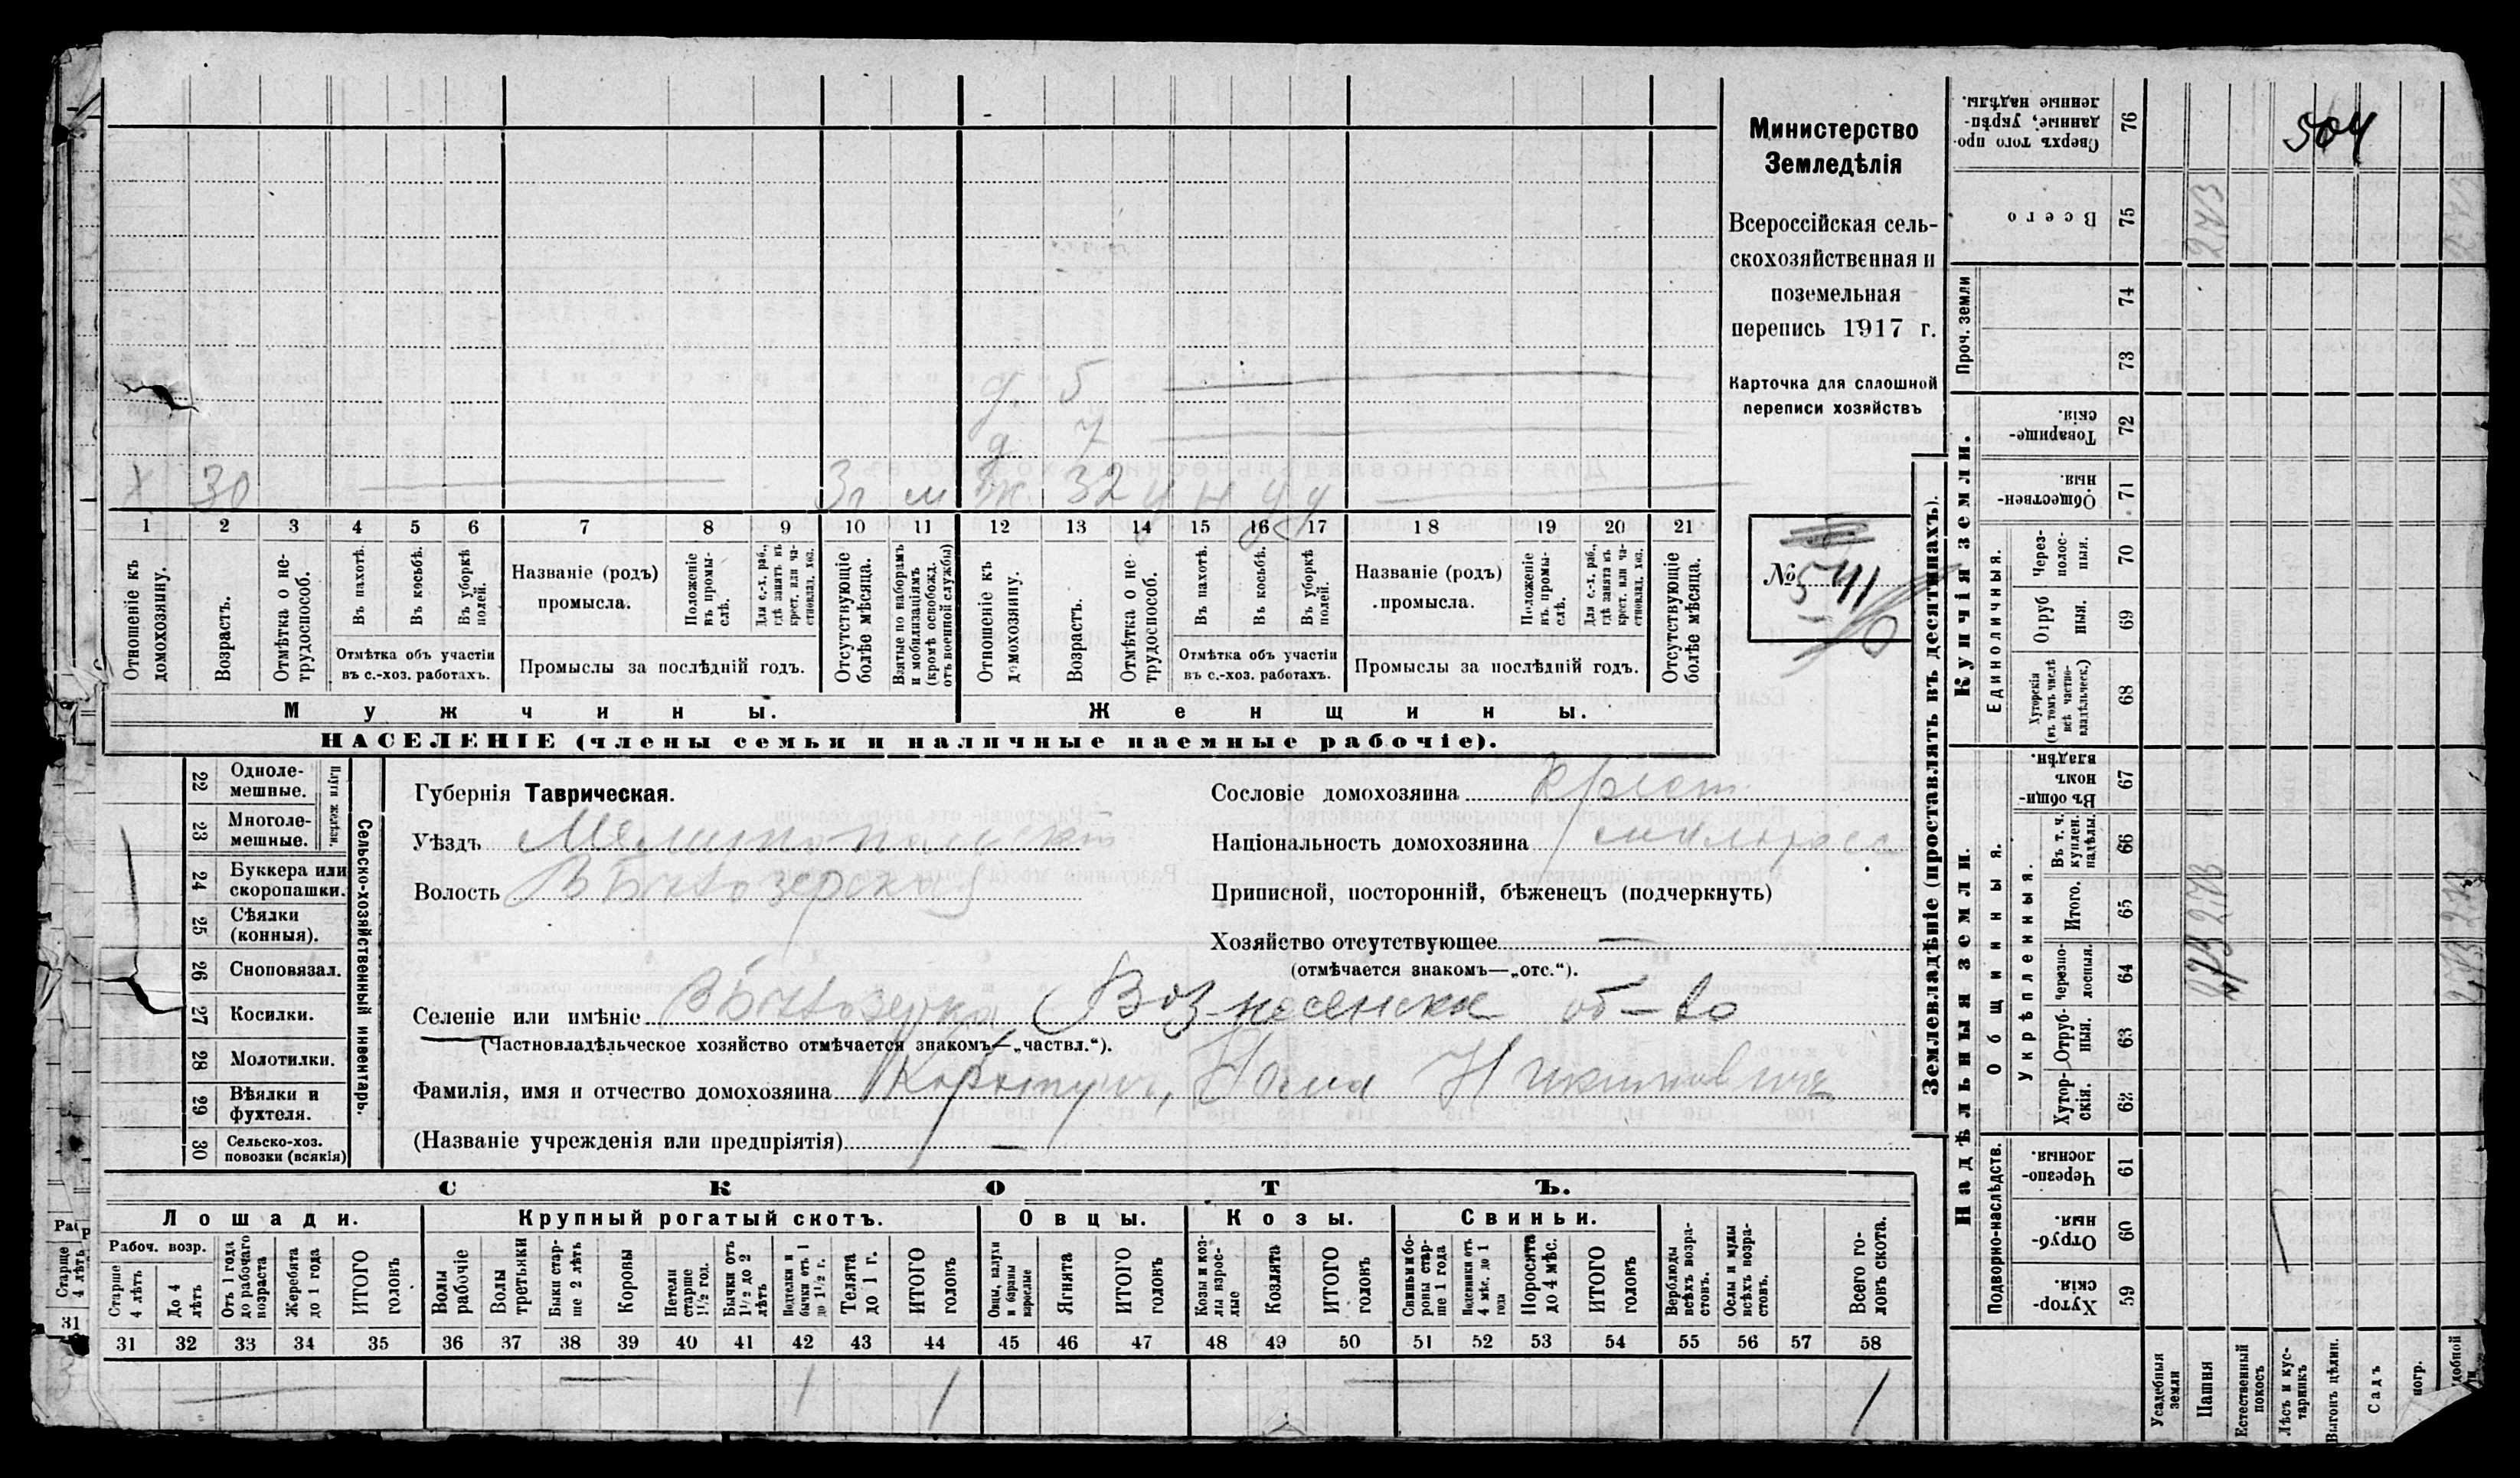 504
Министерство
Земледѣлія
Всероссійская сель-
скохозяйственная и
поземельная
перепись 1917 г.
Карточка для сплошной
переписи хозяйствъ
№ 541
д 5
д 7
х 30 3г м ж 32 у н у у
1 2 3 4 5 6 7 8 9 10 11 12 13 14 15 16 17 18 19 20 21
Отношеніе къ домохозяину.
Возрастъ.
Отмѣтка о не-трудоспособ.
Въ пахотѣ.
Въ косьбѣ.
Въ уборкѣ полей.
Отмѣтка объ участіи
въ с.-хоз. работахъ.
Названіе (родъ)
промысла.
Положеніе въ промы-слѣ.
Для с.-х. раб., гдѣ занятъ въ крест. или ча-стновлад. хоз.
Промыслы за послѣдній годъ.
Отсутствующіе болѣе мѣсяца.
Взятые по наборамъ и мобилизаціямъ (кромѣ освобожд. отъ военной службы)
Отношеніе къ домохозяину.
Возрастъ.
Отмѣтка о не-трудоспособ.
Въ пахотѣ.
Въ косьбѣ.
Въ уборкѣ полей.
Отмѣтка объ участіи
въ с.-хоз. работахъ.
Названіе (родъ)
промысла.
Положеніе въ промы-слѣ.
Для с.-х. раб., гдѣ занята въ крест. или ча-стновлад. хоз.
Промыслы за послѣдній годъ.
Отсутствующіе болѣе мѣсяца.
Мужчины. Женщины.
НАСЕЛЕНІЕ (члены семьи и наличные наемные рабочіе).
Сельско-хозяйственный инвентарь.
Плуги желѣзн.
22 Одноле-мешные.
23 Многоле-мешные.
24 Буккера или скоропашки.
25 Сѣялки (конныя).
26 Сноповязал.
27 Косилки.
28 Молотилки.
29 Вѣялки и фухтеля.
30 Сельско-хоз. повозки (всякія)
Губернія Таврическая.
Уѣздъ Мелитопольскій
Волость В Бѣлозерская
Сословіе домохозяина Крест.
Національность домохозяина малоросс
Приписной, посторонній, бѣженецъ (подчеркнуть)
Хозяйство отсутствующее —
(отмѣчается знакомъ—„отс.“).
Селеніе или имѣніе В Бѣлозерка (Вознесенское об-во
(Частновладѣльческое хозяйство отмѣчается знакомъ—„частвл.“).
Фамилія, имя и отчество домохозяина
(Названіе учрежденія или предпріятія) —
СКОТЪ.
Лошади. Крупный рогатый скотъ. Овцы. Козы. Свиньи.
Рабоч. возр.
Старше 4 лѣтъ
До 4 лѣтъ
Отъ 1 года до рабочаго возраста
Жеребята до 1 года
ИТОГО головъ
Волы рабочіе
Волы третьяки
Быки стар-ше 2 лѣтъ
Коровы
Нетели старше 1½ год.
Бычки отъ 1½ до 2 лѣтъ
Подтелки и бычки отъ 1 до 1½ г.
Телята до 1 г.
ИТОГО головъ
Овцы, валухи и бараны взрослые
Ягнята
ИТОГО головъ
Козы и коз-лы взрос-лые
Козлята
ИТОГО головъ
Свиньи и бо-ровы стар-ше 1 года
Подсвинки отъ 4 мѣс. до 1 года
Поросята до 4 мѣс.
ИТОГО головъ
Верблюды всѣхъ возра-стовъ.
Ослы и мулы всѣхъ возра-стовъ.
Всего го-ловъ скота.
31 32 33 34 35 36 37 38 39 40 41 42 43 44 45 46 47 48 49 50 51 52 53 54 55 56 57 58
1 1 1
Землевладѣніе (проставлять въ десятинахъ).
Купчія земли.
Надѣльныя земли.
Сверхъ того про-данные, укрѣп-ленные надѣлы. 76
Всего 75
Проч. земли 74 73
Товарище-скія. 72
Обществен-ныя. 71
Единоличныя.
Через-полос-ныя. 70
Отруб ныя. 69
Хуторскія (въ томъ числѣ всѣ частно-владѣльческ.) 68
Общинныя.
Въ общи-номъ владѣн. 67
Укрѣпленныя.
Въ т. ч. куплен. надѣлы. 66
Итого. 65
Черезпо-лосныя. 64
Отруб-ныя. 63
Хутор-скія. 62
Подворно-наслѣдств.
Черезпо-лосныя. 61
Отруб-ныя. 60
Хутор-скія. 59
Усадебныя земли
Пашня
Естественный покосъ
Лѣсъ и кус-тарникъ
Выгонъ цѣлин.
Садъ